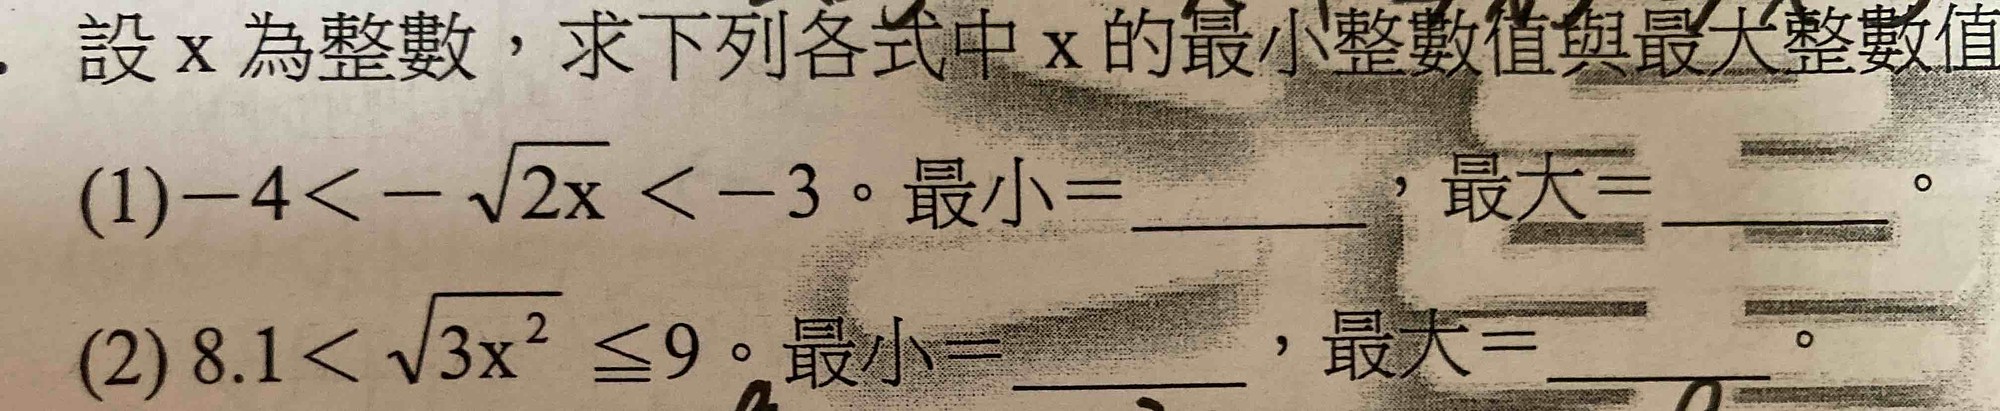 設 x 為整數，求下列各式中 x 的最小整數值與最大整數值
(1)－4＜－√2x ＜－3。最小＝＿＿＿＿，最大＝＿＿＿＿。
(2) 8.1＜ √3x² ≦9。最小＝＿＿＿＿，最大＝＿＿＿＿。